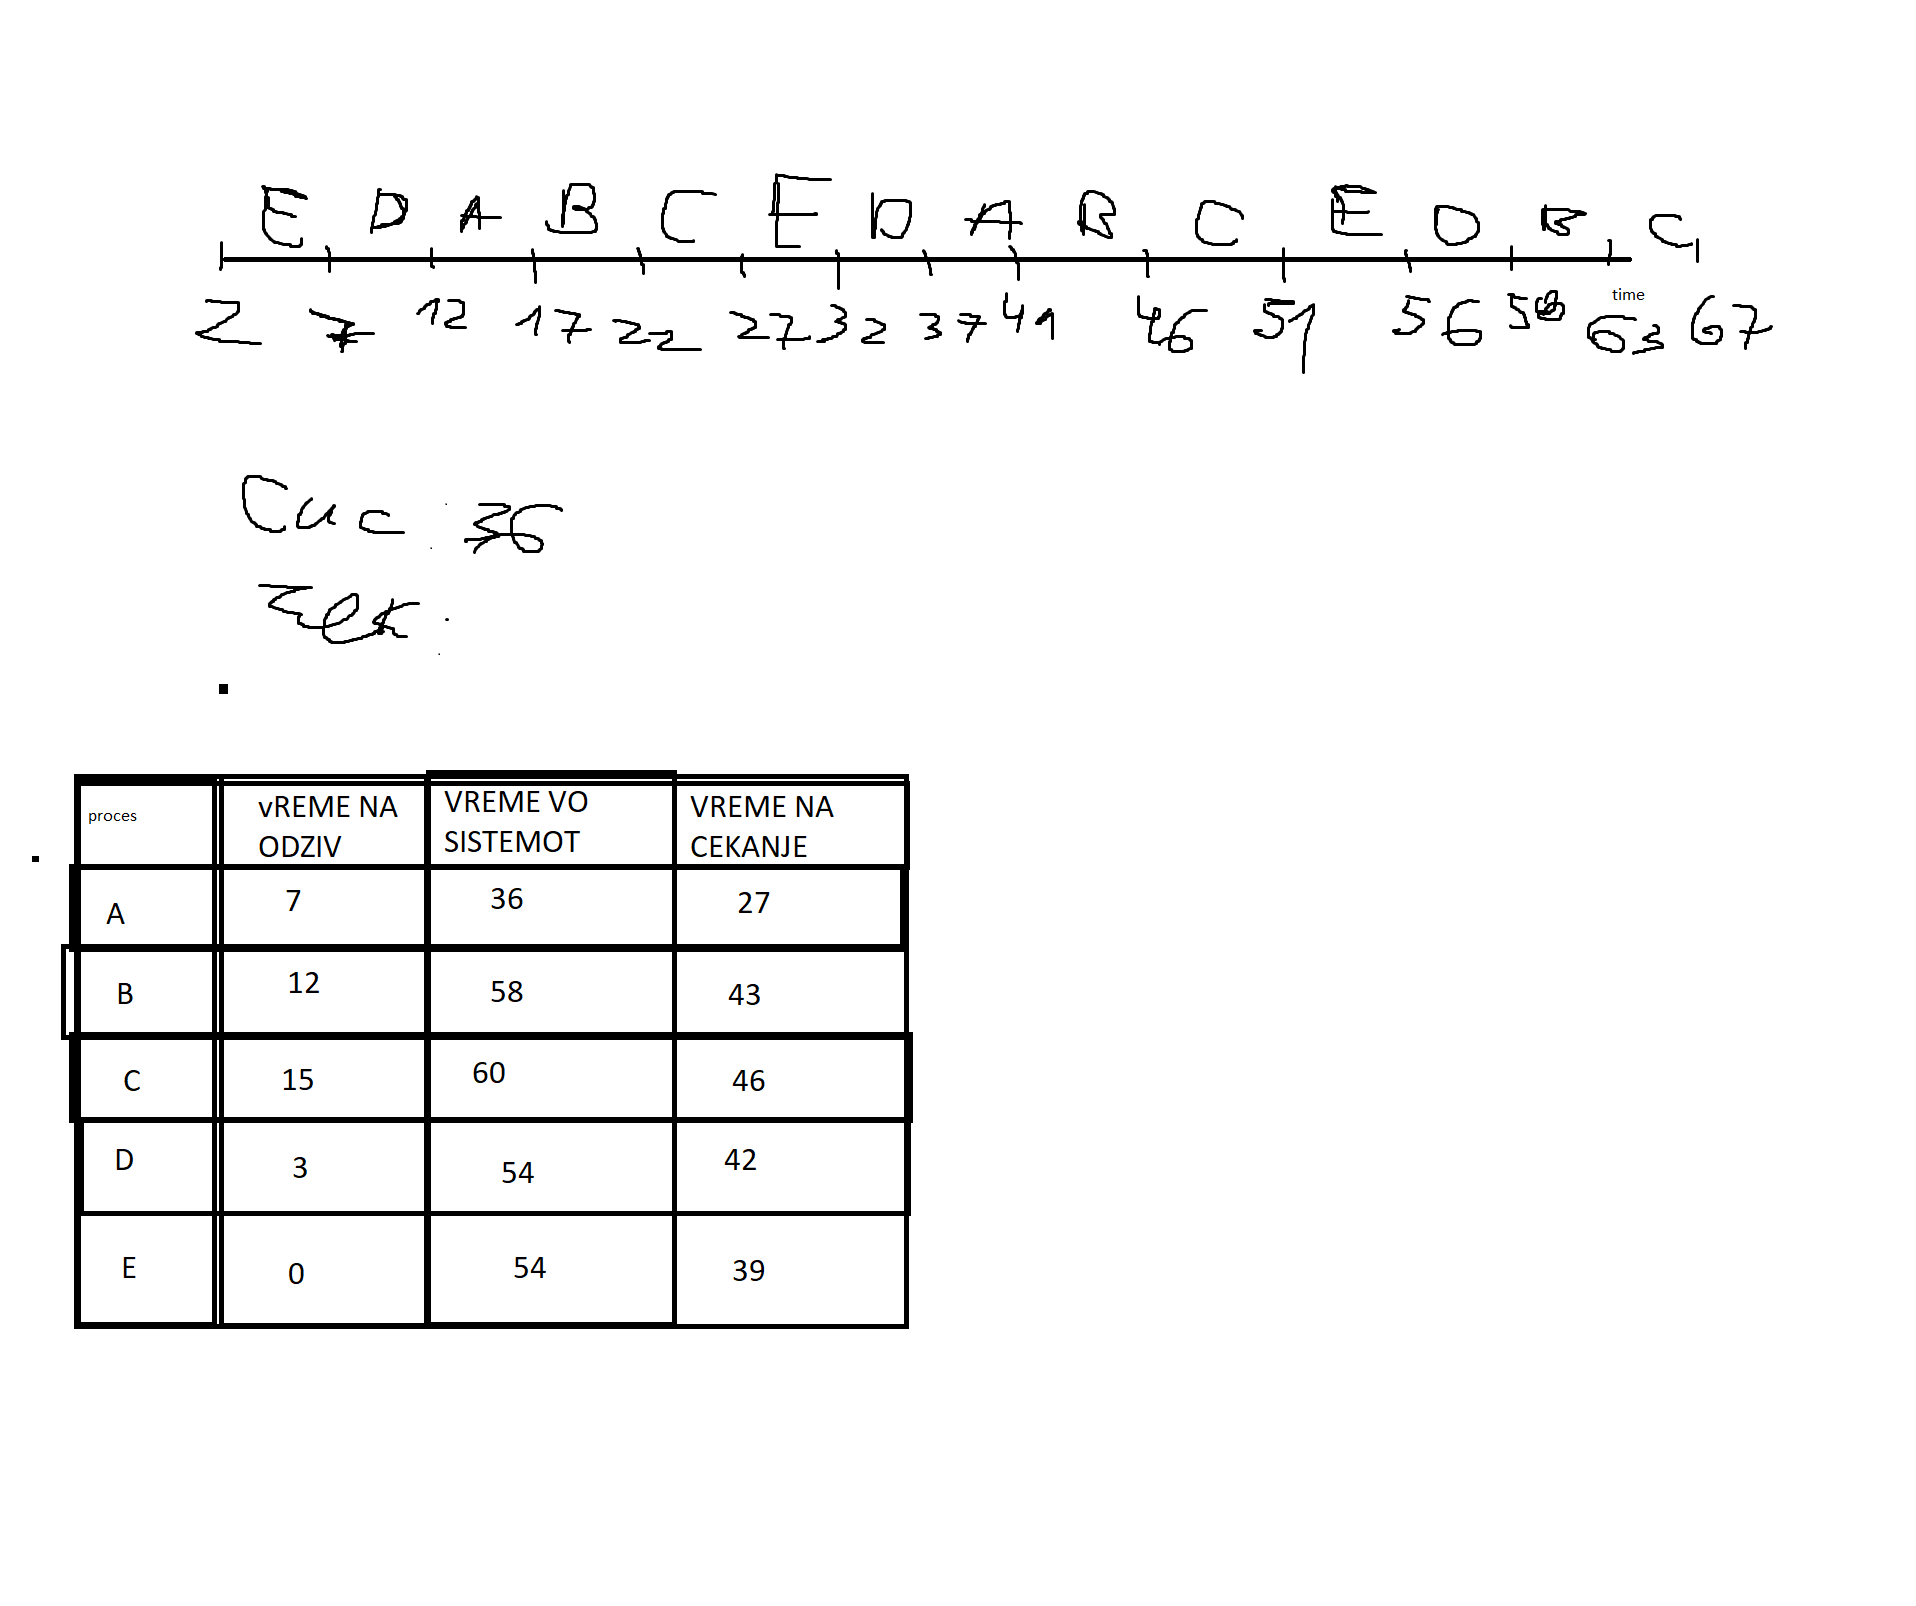 E D A B C E D A B C E D B C
2 7 12 17 22 27 32 37 41 46 51 56 58 time 63 67
36
proces vREME NA ODZIV VREME VO SISTEMOT VREME NA CEKANJE
A 7 36 27
B 12 58 43
C 15 60 46
D 3 54 42
E 0 54 39